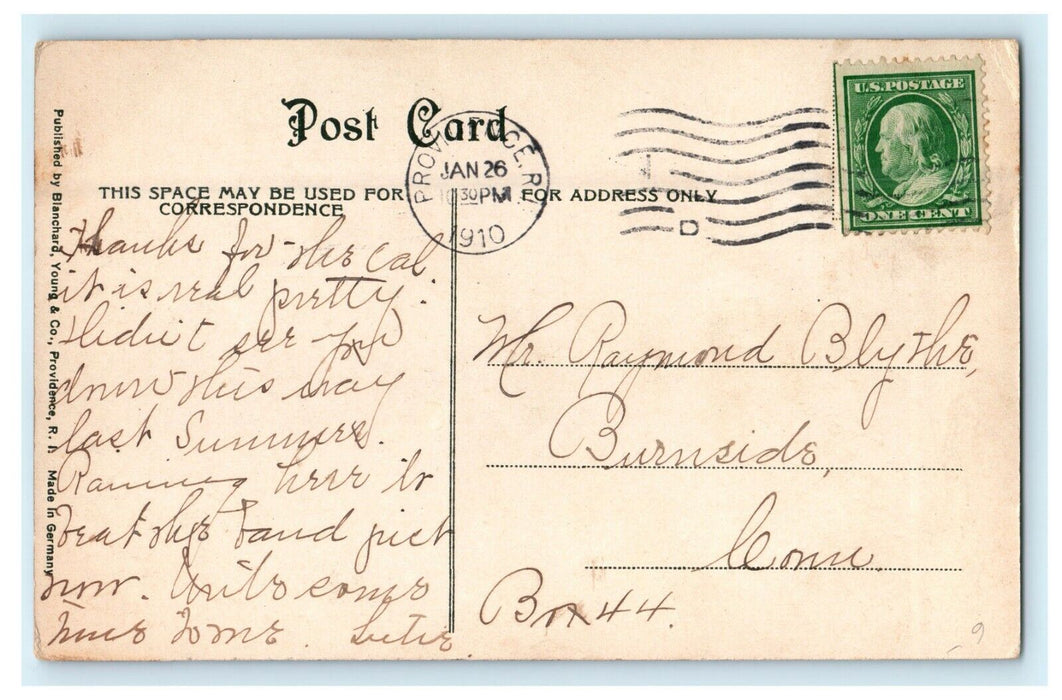 Post Card
THIS SPACE MAY BE USED FOR
CORRESPONDENCE
FOR ADDRESS ONLY
JAN 26
30 PM
1910
D
U.S. POSTAGE
ONE CENT
Published by Blanchard, Young & Co., Providence, R. I. Made in Germany
Thanks for the Cal.
it is real pretty.
Didn't see you
down this way
last Summer.
Raining here to
beat the band just
now. Write some
time to me.
Mr. Raymond Blythe,
Burnside,
Conn.
Box 44.
9